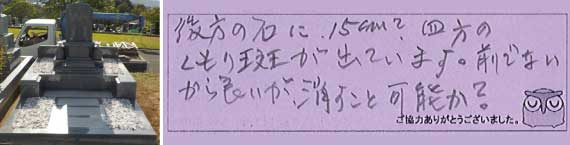 後方の石に、15cm?四方の
くもり斑が出ています。前でない
から良いが、消すこと可能か?
ご協力ありがとうございました。